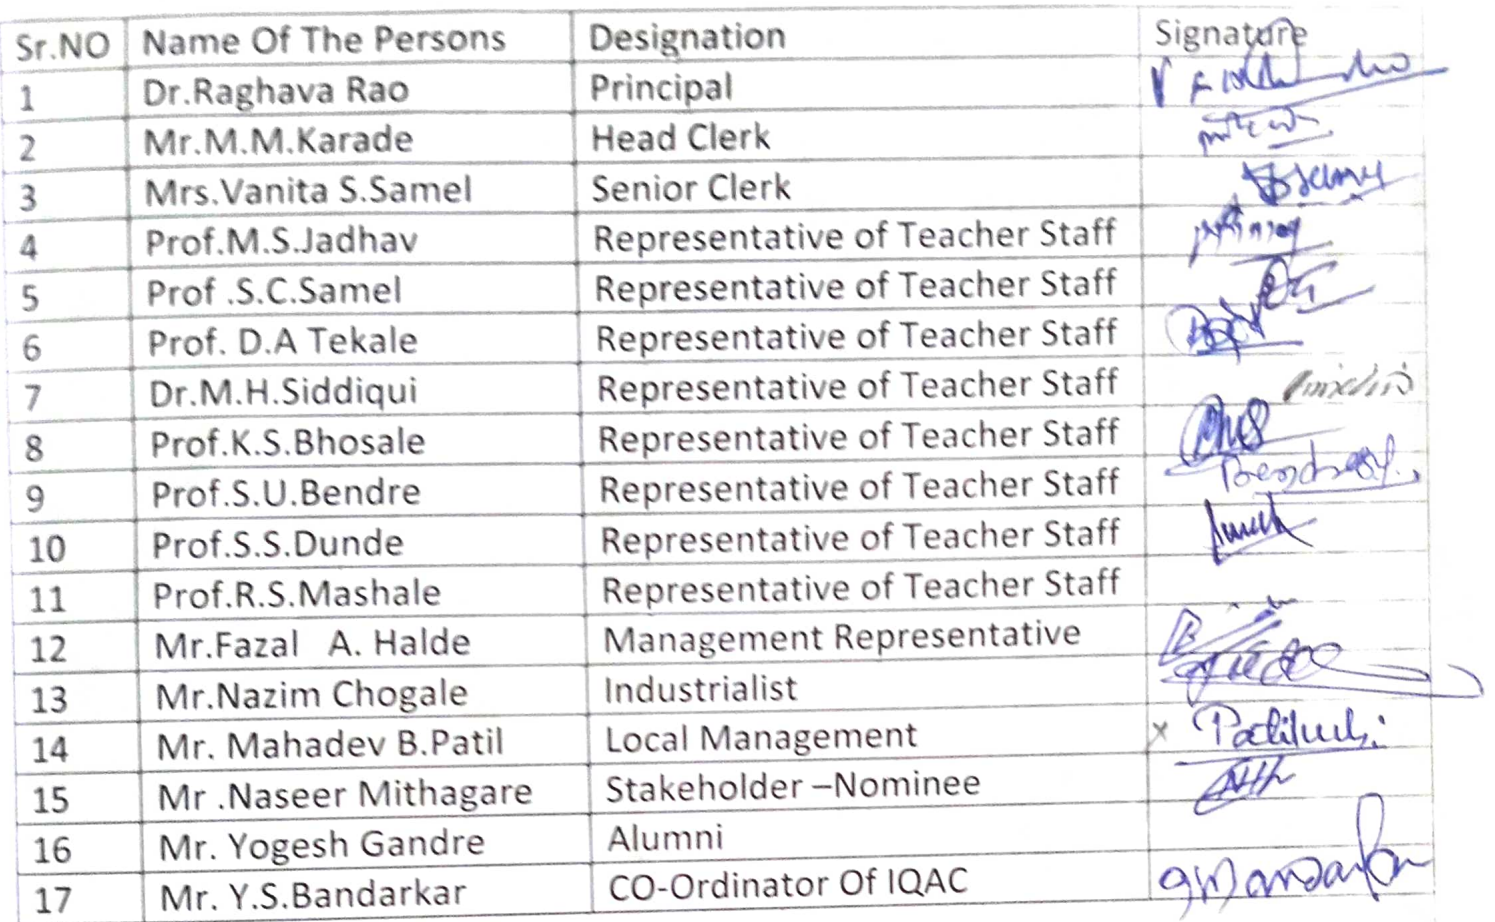 Sr.NO Name Of The Persons Designation Signature
1 Dr.Raghava Rao Principal
2 Mr.M.M.Karade Head Clerk
3 Mrs.Vanita S.Samel Senior Clerk
4 Prof.M.S.Jadhav Representative of Teacher Staff
5 Prof .S.C.Samel Representative of Teacher Staff
6 Prof. D.A Tekale Representative of Teacher Staff
7 Dr.M.H.Siddiqui Representative of Teacher Staff
8 Prof.K.S.Bhosale Representative of Teacher Staff
9 Prof.S.U.Bendre Representative of Teacher Staff
10 Prof.S.S.Dunde Representative of Teacher Staff
11 Prof.R.S.Mashale Representative of Teacher Staff
12 Mr.Fazal A. Halde Management Representative
13 Mr.Nazim Chogale Industrialist
14 Mr. Mahadev B.Patil Local Management x
15 Mr .Naseer Mithagare Stakeholder –Nominee
16 Mr. Yogesh Gandre Alumni
17 Mr. Y.S.Bandarkar CO-Ordinator Of IQAC